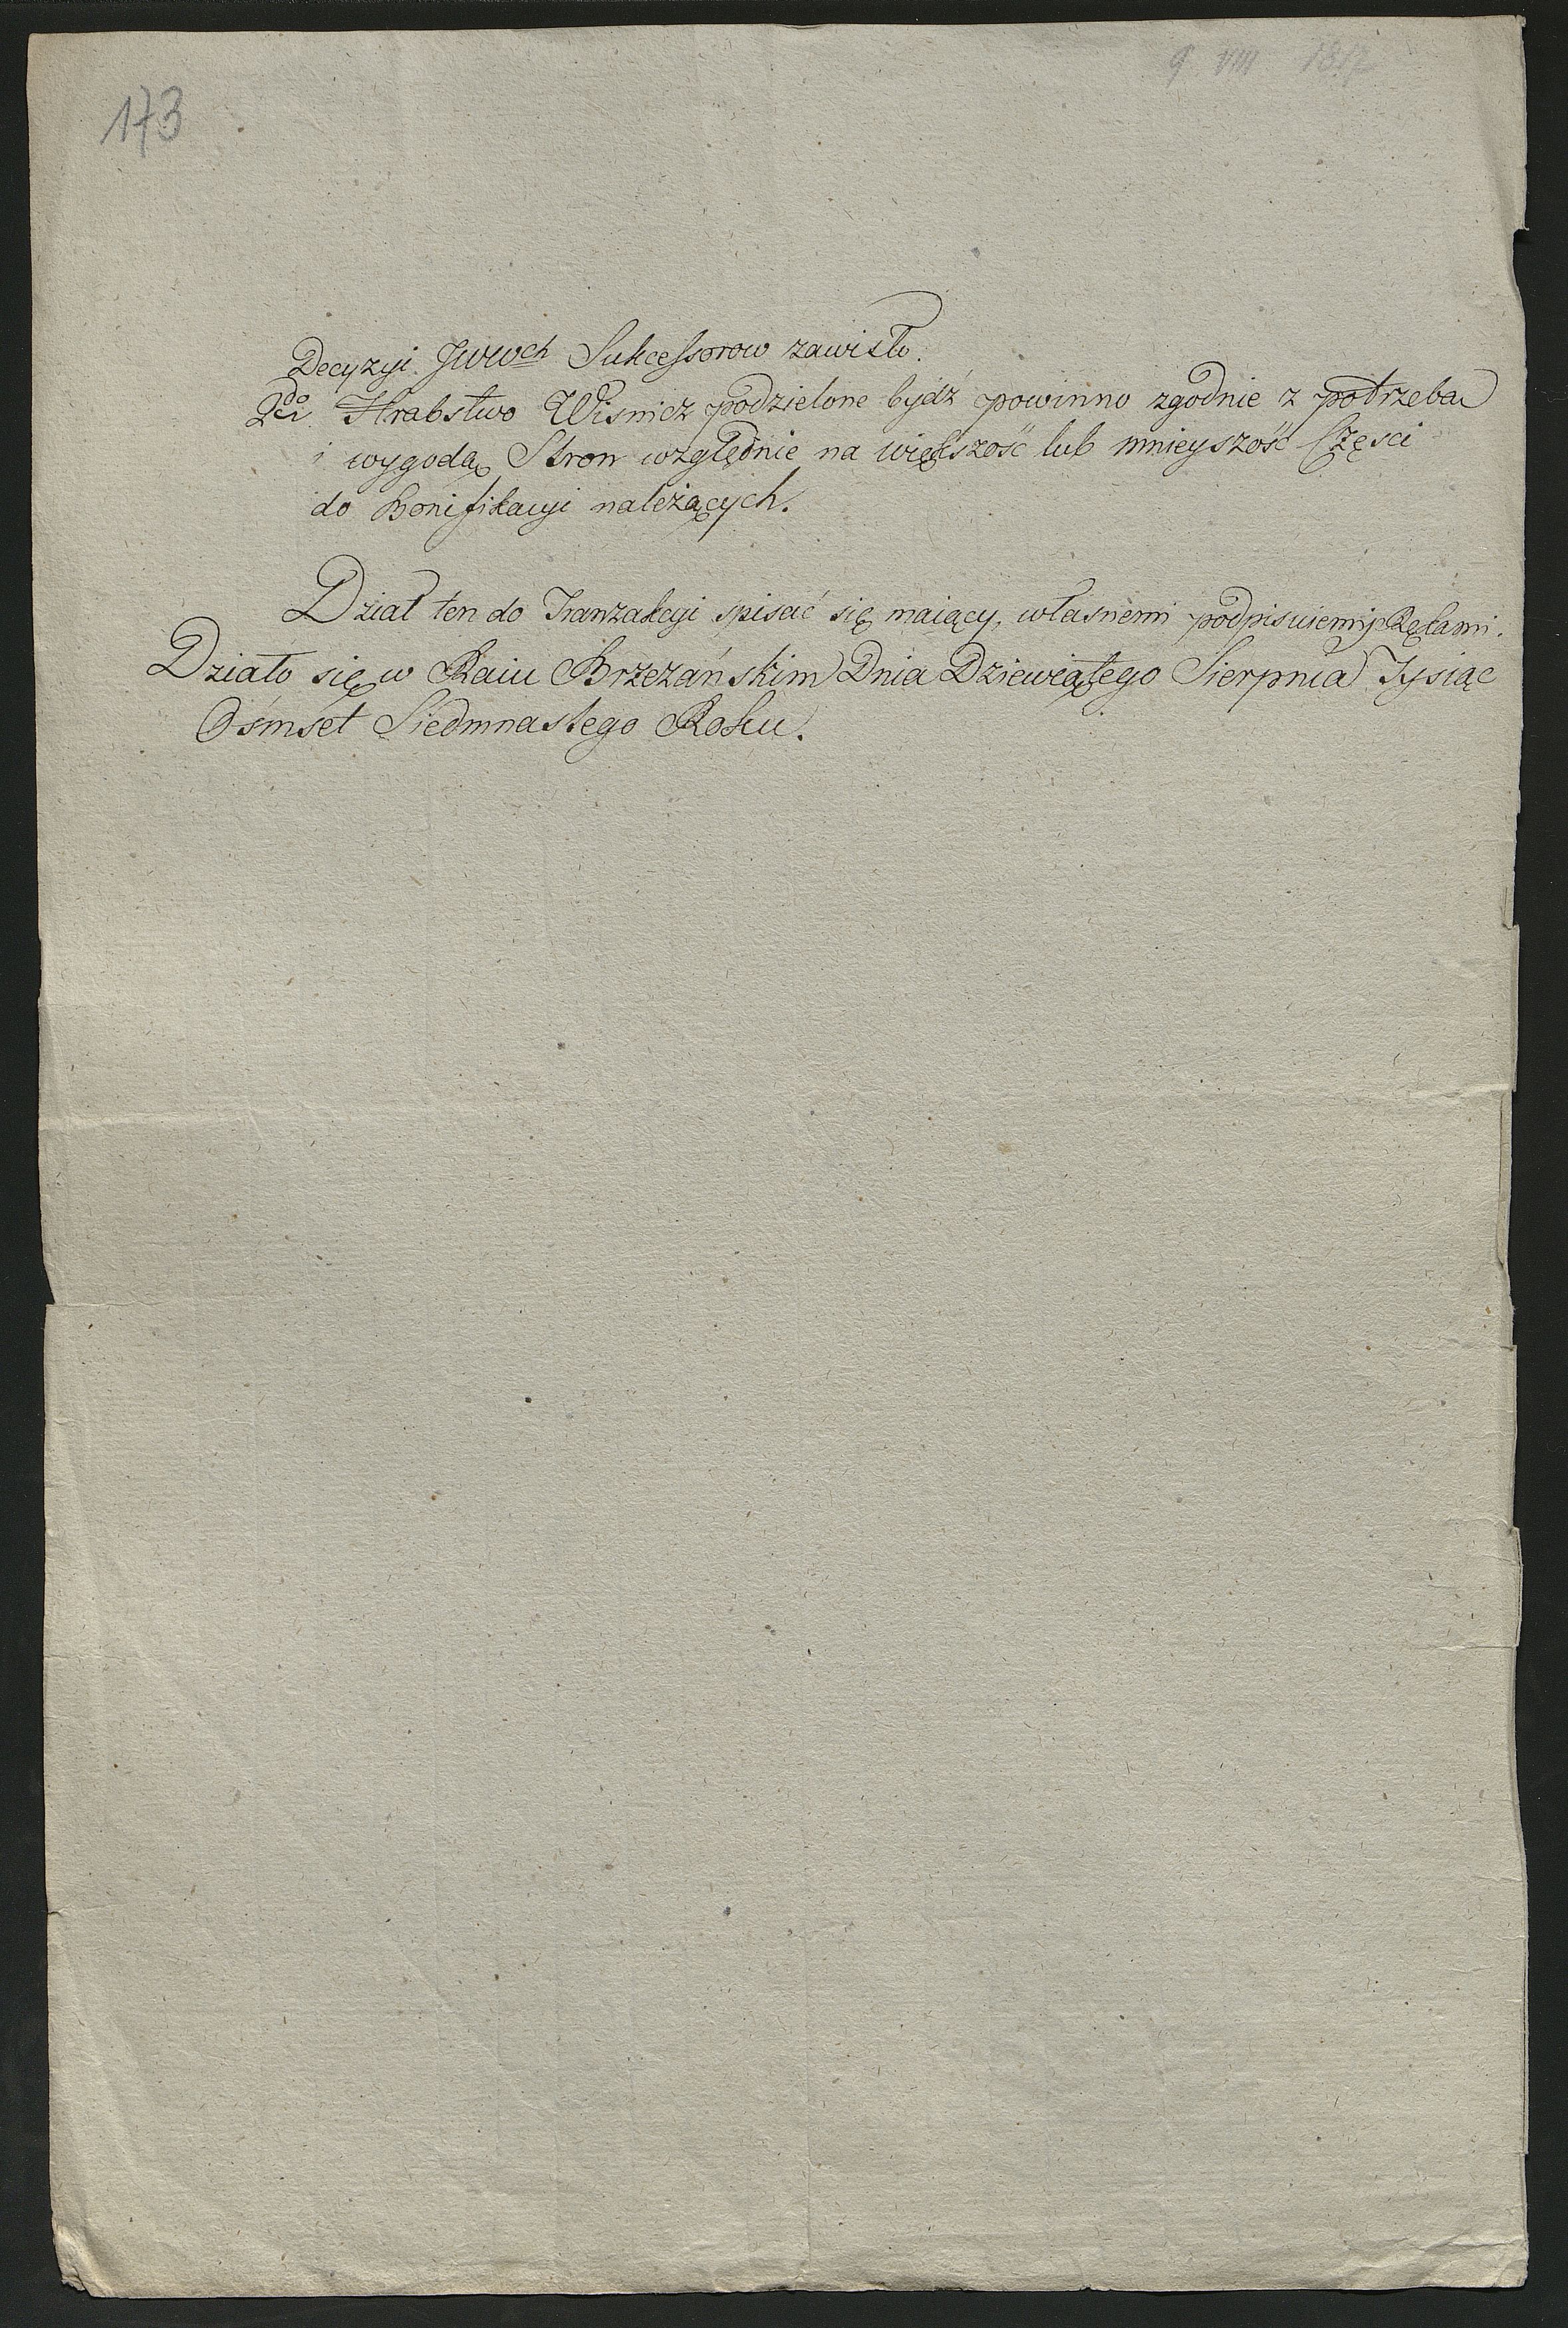 9 VIII 1817
173
Decyzyi JWWch Sukcessorow zawisło.
2do Hrabstwo Wisnicz podzielone bydź powinno zgodnie z potrzebą
i wygodą Stron względnie na większość lub mnieyszość Częsci
do Bonifikacyi należących.
Dział ten do Tranzakcyi spisać się maiący, własnemi podpisuiemy Rękami.
Działo się w Raiu Brzezańskim Dnia Dziewiątego Sierpnia Tysiąc
Osmset Siedmnastego Roku.